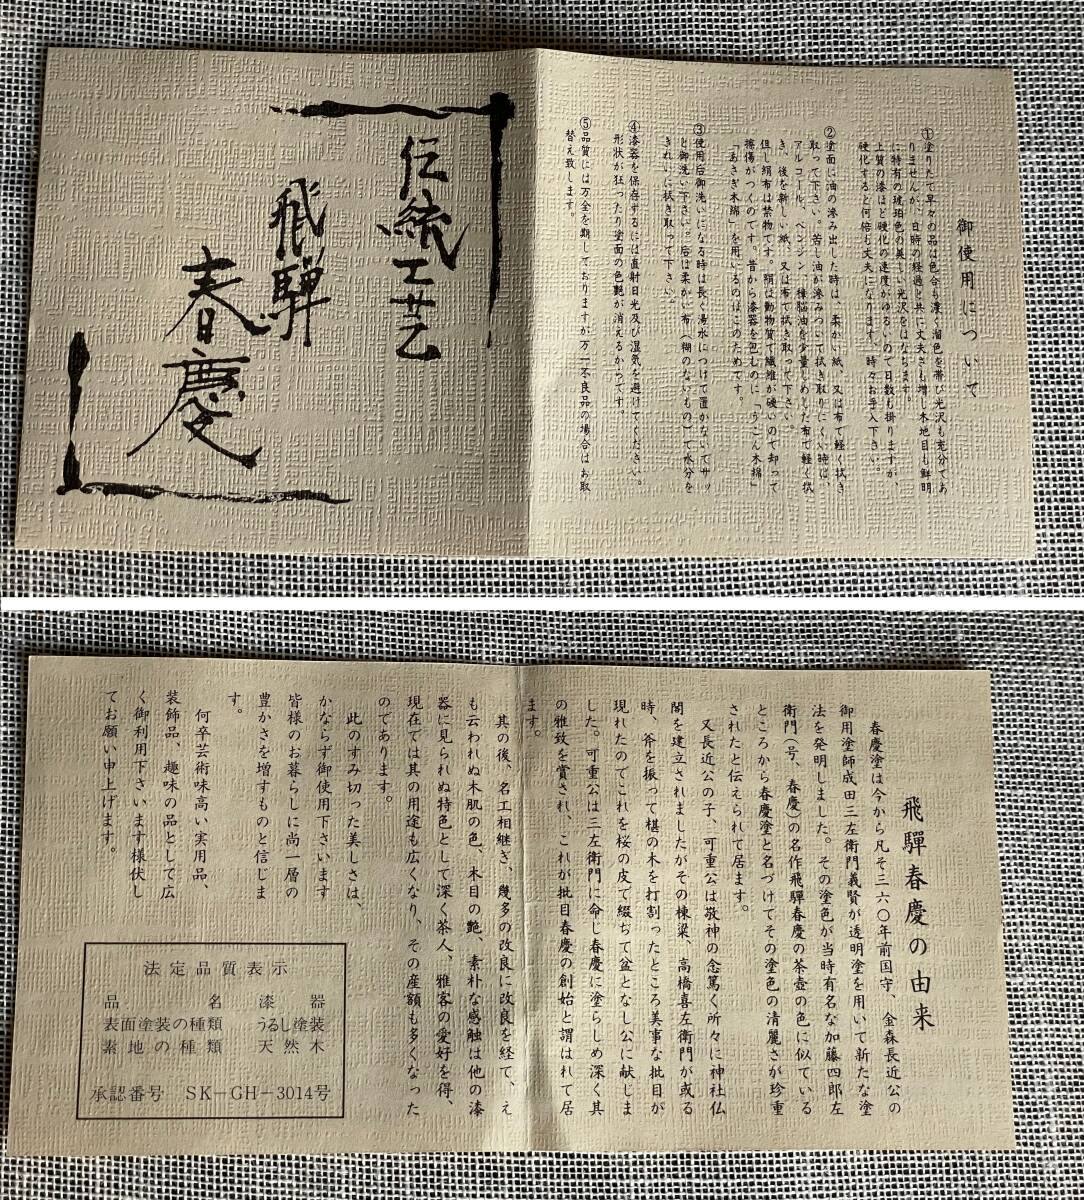 伝統工芸
飛騨
春慶
御使用について
①塗りたて早々の品は色合も濃く溜色を帯び光沢も充分であ
りませんが、日時の経過と共に丈夫さも増し木地目も鮮明
に特有の琥珀色の美しい光沢をはなちます。
上質の漆ほど硬化の速度がゆるいので日数も掛りますが、
硬化すると何倍も丈夫になります。時々お手入下さい。
②塗面に油の滲み出した時は、柔かい紙、又は布で軽く拭き
取って下さい。若し油が滲みついて拭き取りにくい時は、
アルコール、ベンジン、樟脳油を少量しめした布で軽く拭
き、後を新しい紙、又は布で拭き取って下さい。
但し絹布は禁物です。絹は動物質で繊維が硬いので却って
擦傷がつくのです。昔から漆器を包むのに「うこん木綿」
「あさぎ木綿」を用いるのはこのためです。
③使用后御洗いになる時は長く湯水につけて置かないでサッ
と御洗い下さい。后は柔かい布（糊のないもの）で水分を
きれいに拭き取って下さい。
④漆器を保存するには直射日光及び湿気を避けてください。
形状が狂ったり塗面の色艶が消えるからです。
⑤品質には万全を期しておりますが万一不良品の場合はお取
替え致します。
飛驒春慶の由来
春慶塗は今から凡そ三六〇年前国守、金森長近公の
御用塗師成田三左衛門義賢が透明塗を用いて新たな塗
法を発明しました。その塗色が当時有名な加藤四郎左
衛門（号、春慶）の名作飛驒春慶の茶壺の色に似ている
ところから春慶塗と名づけてその塗色の清麗さが珍重
されたと伝えられて居ます。
又長近公の子、可重公は敬神の念篤く所々に神社仏
閣を建立されましたがその棟梁、高橋喜左衛門が或る
時、斧を振って椹の木を打割ったところ美事な批目が
現れたのでこれを桜の皮で綴ぢて盆となし公に献じま
した。可重公は三左衛門に命じ春慶に塗らしめ深く其
の雅致を賞され、これが批目春慶の創始と謂はれて居
ます。
其の後、名工相継ぎ、幾多の改良に改良を経て、え
も云われぬ木肌の色、木目の艶、素朴な感触は他の漆
器に見られぬ特色として深く茶人、雅客の愛好を得、
現在では其の用途も広くなり、その産額も多くなった
のであります。
此のすみ切った美しさは、
かならず御使用下さいます
皆様のお暮らしに尚一層の
豊かさを増すものと信じま
す。
何卒芸術味高い実用品、
装飾品、趣味の品として広
く御利用下さいます様伏し
てお願い申上げます。
法定品質表示
品名 漆器
表面塗装の種類 うるし塗装
素地の種類 天然木
承認番号 SK－GH－3014号